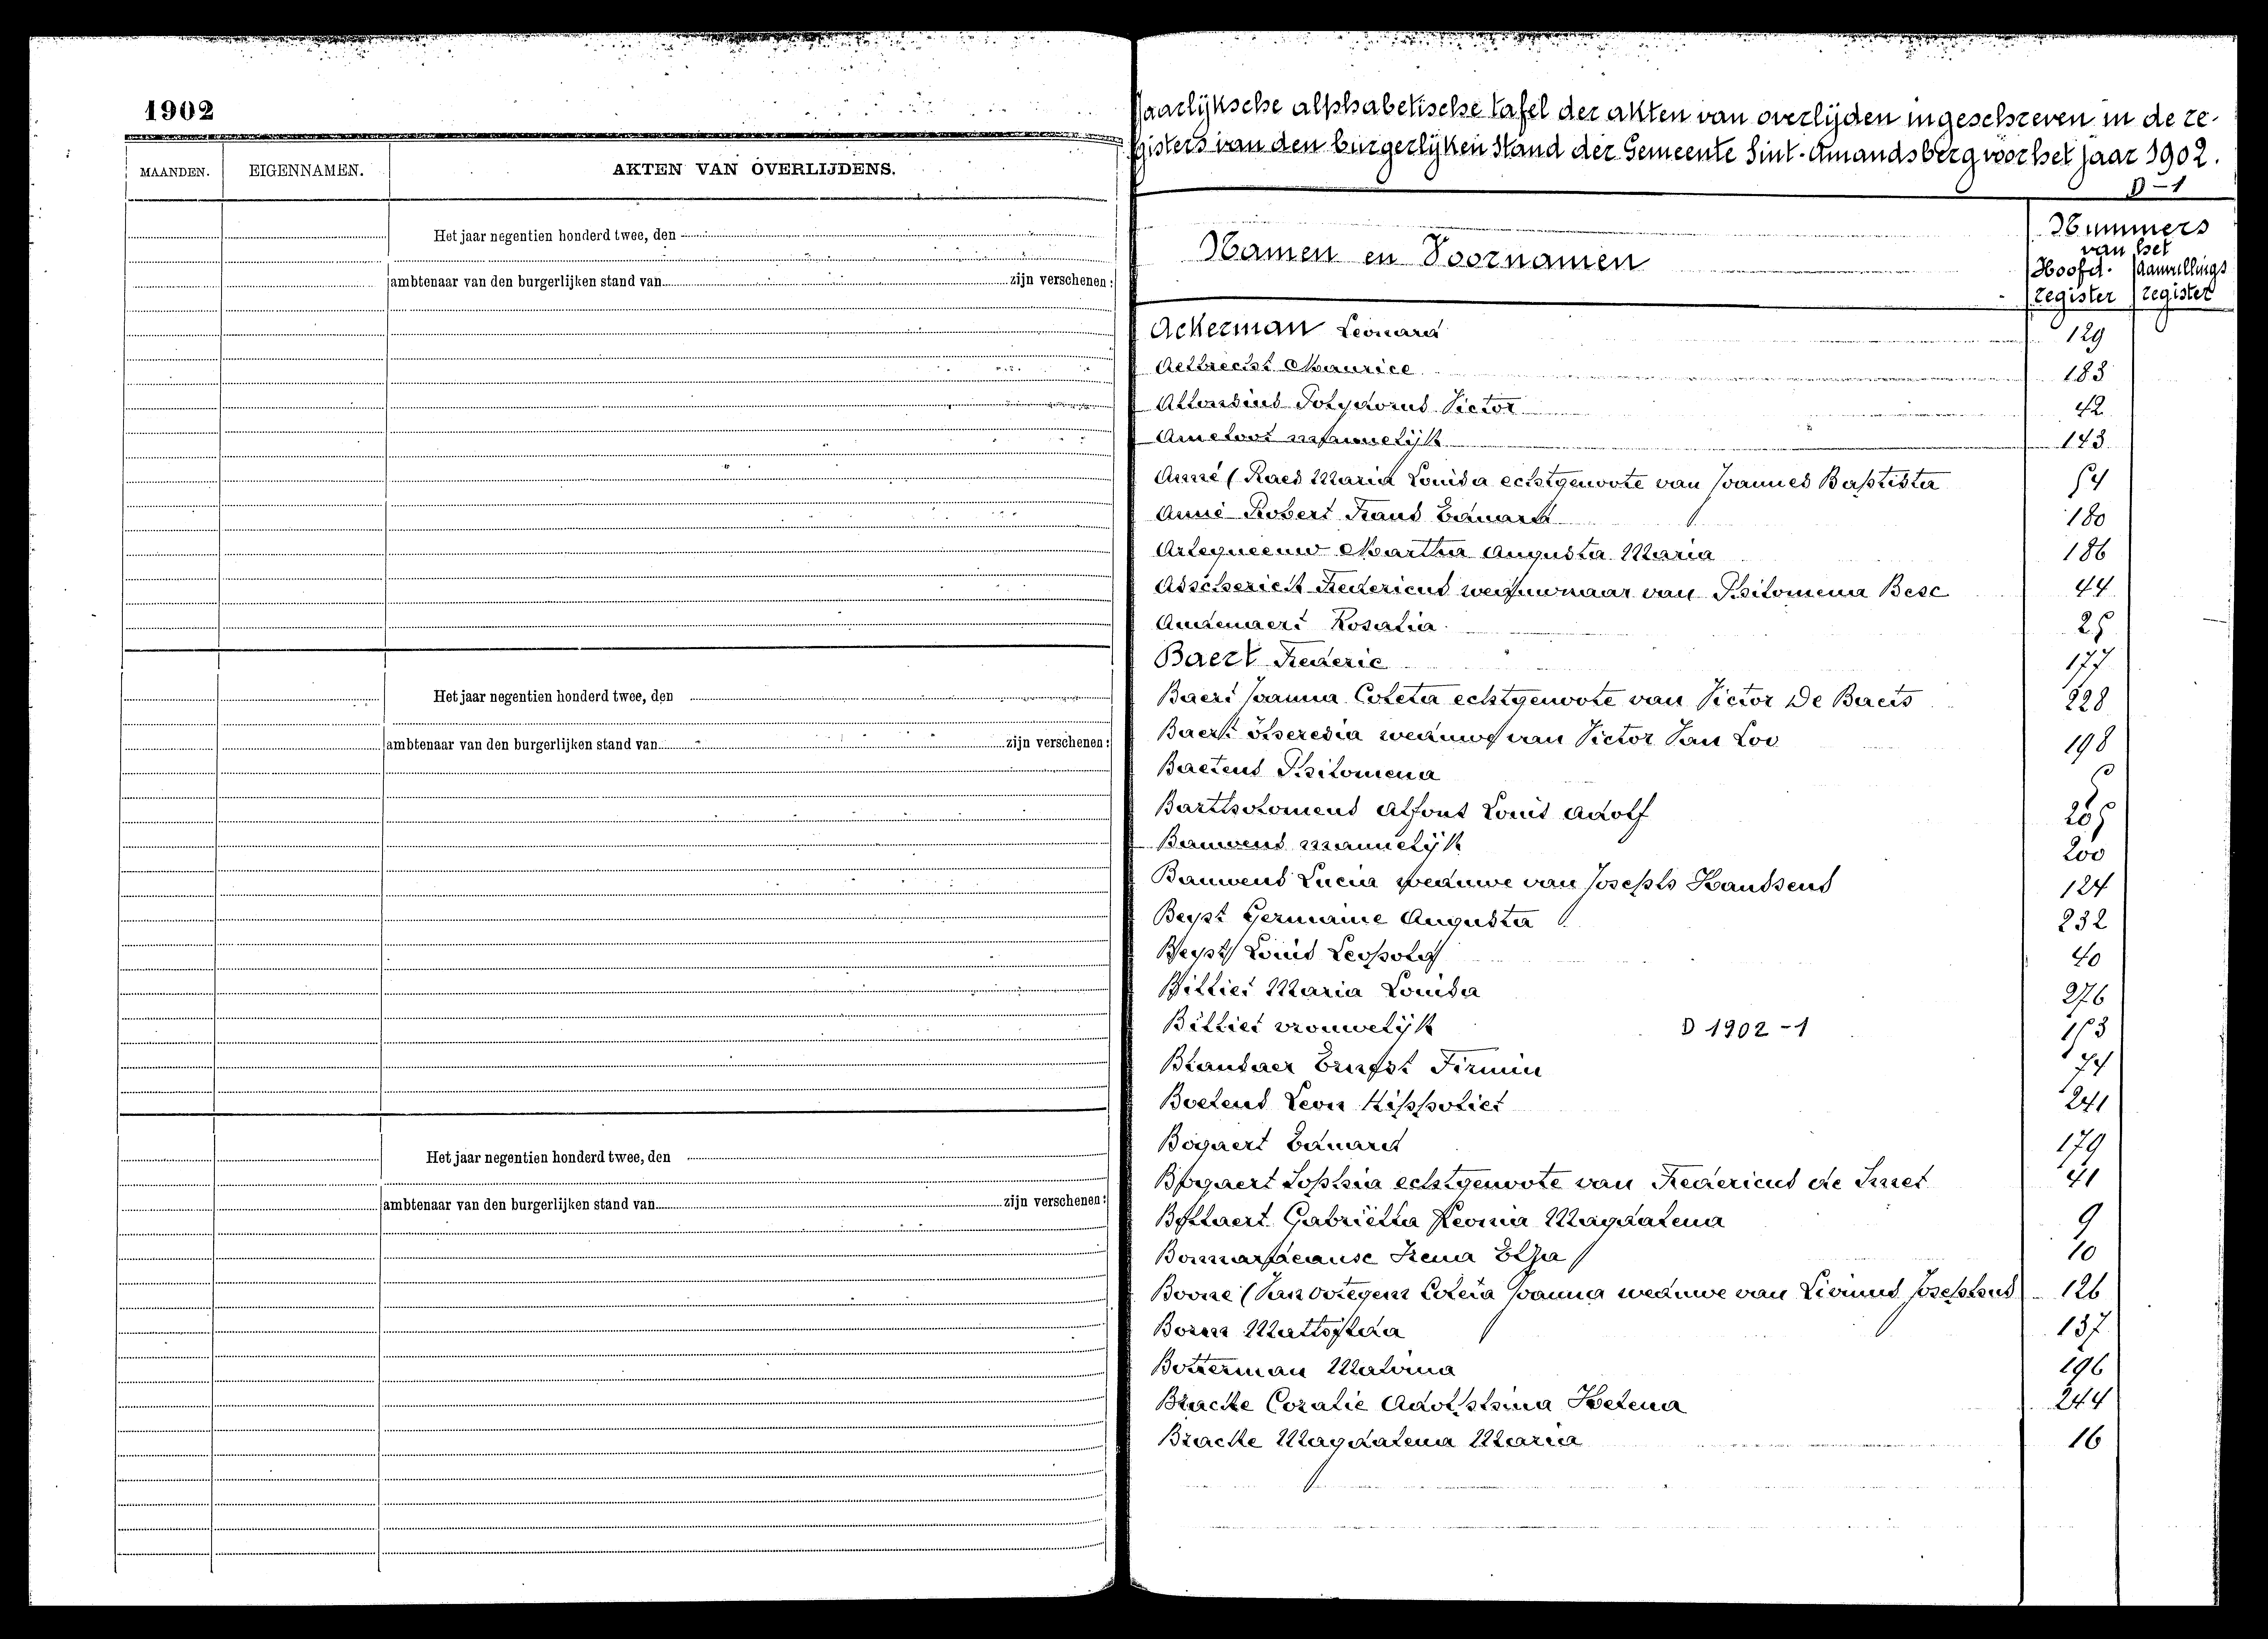 1902
MAANDEN. EIGENNAMEN. AKTEN VAN OVERLIJDENS.
Het jaar negentien honderd twee, den
ambtenaar van den burgerlijken stand van zijn verschenen:
Het jaar negentien honderd twee, den
ambtenaar van den burgerlijken stand van zijn verschenen:
Het jaar negentien honderd twee, den
ambtenaar van den burgerlijken stand van zijn verschenen:
Jaarlijksche alphabetische tafel der akten van overlijden ingeschreven in de re-
gisters van den burgerlijken Stand der Gemeente Sint-Amandsberg voor het jaar 1902.
D-1
Namen en Voornamen
Nummers
van het
Hoofd- Aanvullings
register register
Ackerman Leonard 129
Aelbrecht Maurice 183
Polydorus Victor 42
Ameloot mannelijk 143
Anné (Raes Maria Louisa echtgenoote van Joannes Baptista 54
Anné Robert Frans Eduard 180
Martha Augusta Maria 186
Fredericus weduwnaar van Philomena Besc 44
Audenaert Rosalia 25
Baert Frederic 177
Baert Joanna Coleta echtgenoote van Victor De Baets 228
Baert Theresia weduwe van Victor Van Loo 198
Baetens Philomena
Bartholomeus Alfons Louis Adolf
Bauwens mannelijk 200
Bauwens Lucia weduwe van Joseph Haussens 124
Beyst Germaine Augusta 232
Beyst Louis Leopold 40
Billiet Maria Louisa 276
Billiet vrouwelijk D 1902-1 153
Blansaer Ernest Firmin 74
Boelens Leon Hippoliet 241
Bogaert Eduard 179
Bogaert Sophia echtgenoote van Fredericus de Smet 41
Bollaert Gabriella Leonia Magdalena 9
Irena Elza 10
Boone (Van Ootegem Coleta Joanna weduwe van Livinus Josephus 126
Born 137
Botterman Malvina 196
Bracke Coralie Adolphina Helena 244
Bracke Magdalena Maria 16